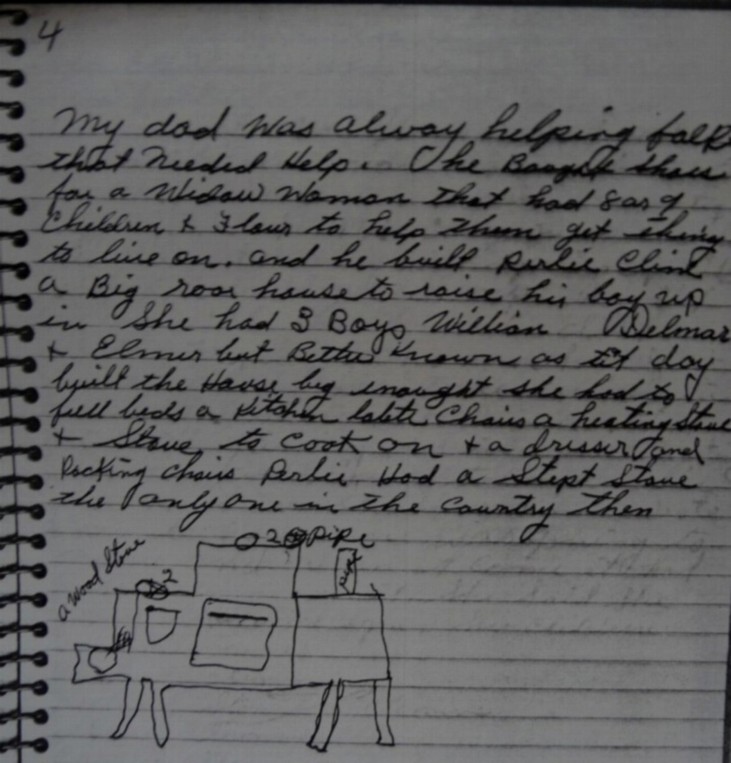 4
My dad was alway helping folk
that Needed Help. he Bought Shoes
for a Widow Woman that had 8 or 9
Children & Flour to help them get thing
to live on. and he built Perlie Cline
a Big roar house to raise his boy up
in She had 3 Boys William Delmar
& Elmer but Better Known as day
built the House big enought she had to
full beds a Kitchen table Chairs a heating Stove
& Stove to Cook on & a dresser and
Rocking chairs Perlie Had a Stept Stove
the only one in the Country then
2 pipe
a Wood Stove
2